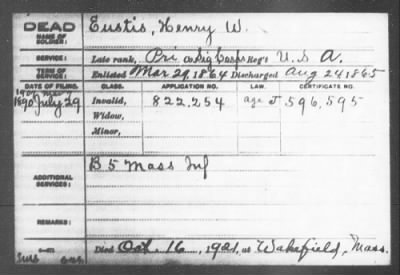 DEAD
NAME OF SOLDIER:
Eustis, Henry W.
SERVICE:
Late rank, Pri Co. Sig Corps Reg't U. S. A.
TERM OF SERVICE:
Enlisted Mar 29, 1864 Discharged Aug 24 1865
DATE OF FILING. CLASS. APPLICATION NO. LAW. CERTIFICATE NO.
1890 July 29 Invalid, 822,254 596,595
Widow,
Minor,
ADDITIONAL SERVICES:
B 5 Mass Inf
REMARKS:
Died Oct. 16, 1921, at Wakefield, Mass.